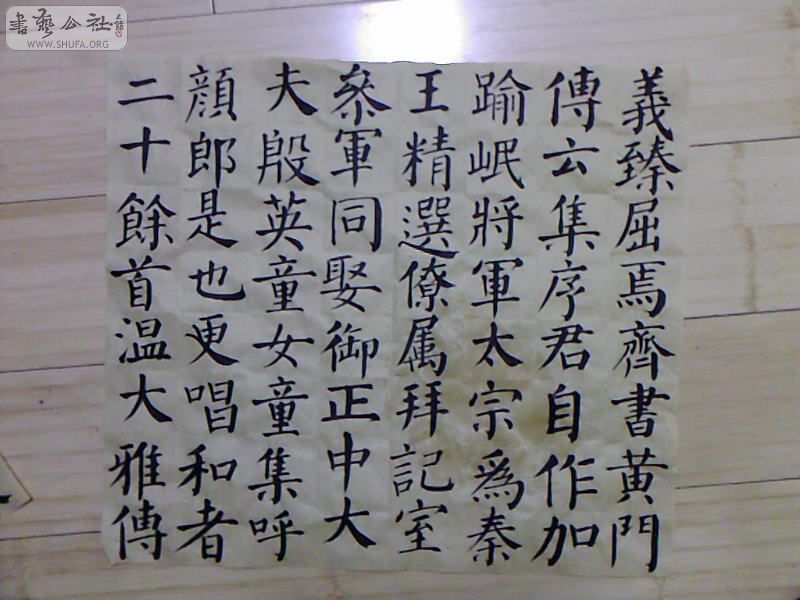 義臻屈焉齊書黄門
傳云集序君自作加
踰岷將軍太宗爲秦
王精選僚属拜記室
叅軍同娶御正中大
夫殷英童女童集呼
顔郎是也更唱和者
二十餘首温大雅傳
書藝公社
WWW.SHUFA.ORG